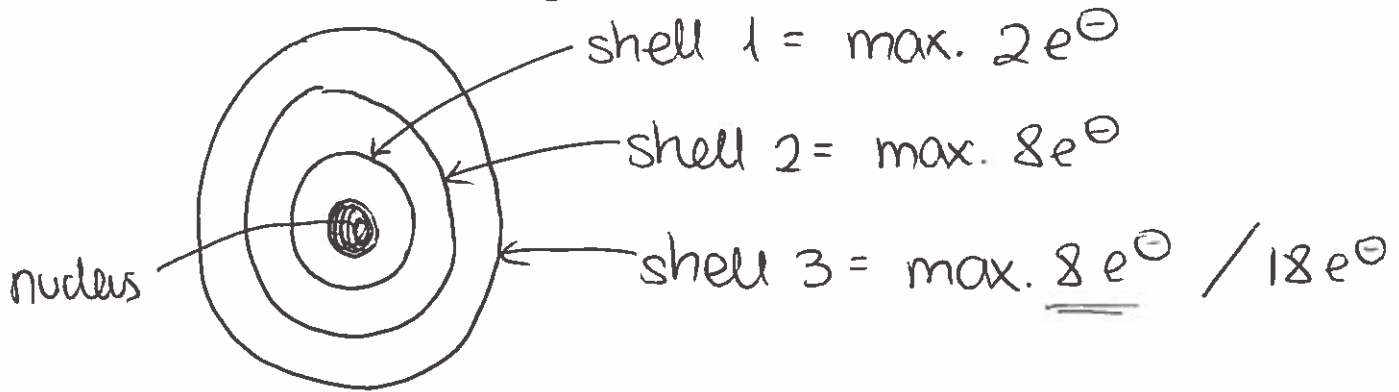 shell 1 = max. 2e⊖
shell 2 = max. 8e⊖
shell 3 = max. 8e⊖ / 18e⊖
nucleus